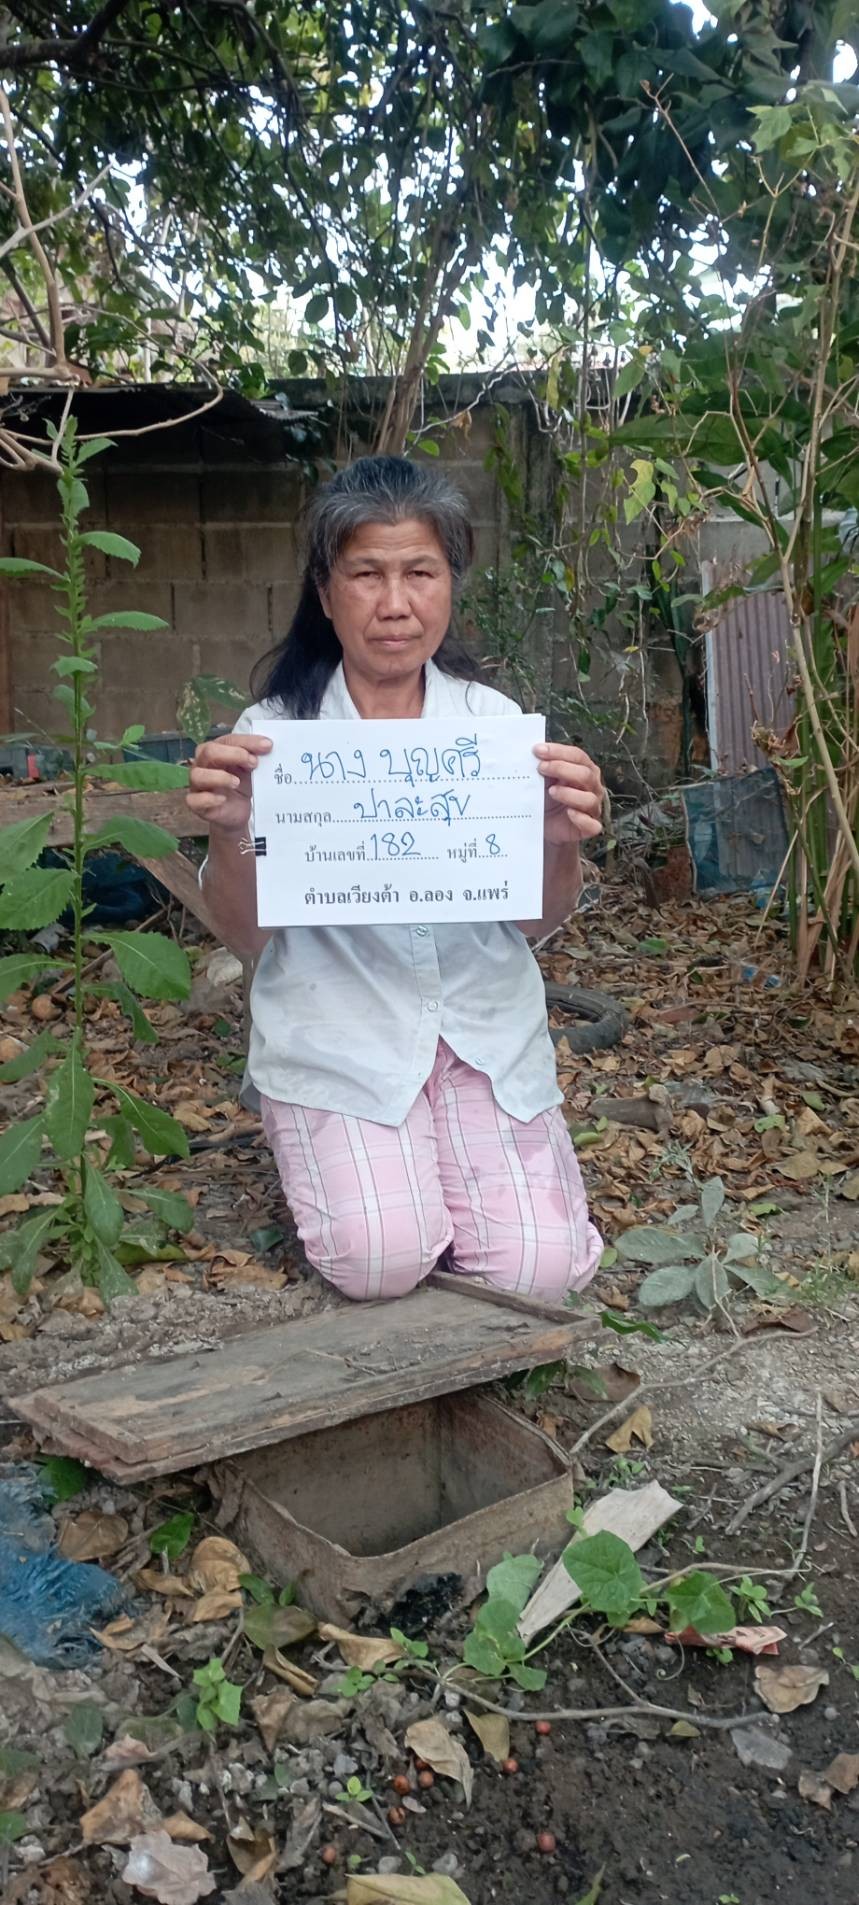 ชื่อ...นาง บุญศรี
นามสกุล...ปาละสุข
บ้านเลขที่...182... หมู่ที่...8...
ตำบลเวียงต้า อ.ลอง จ.แพร่